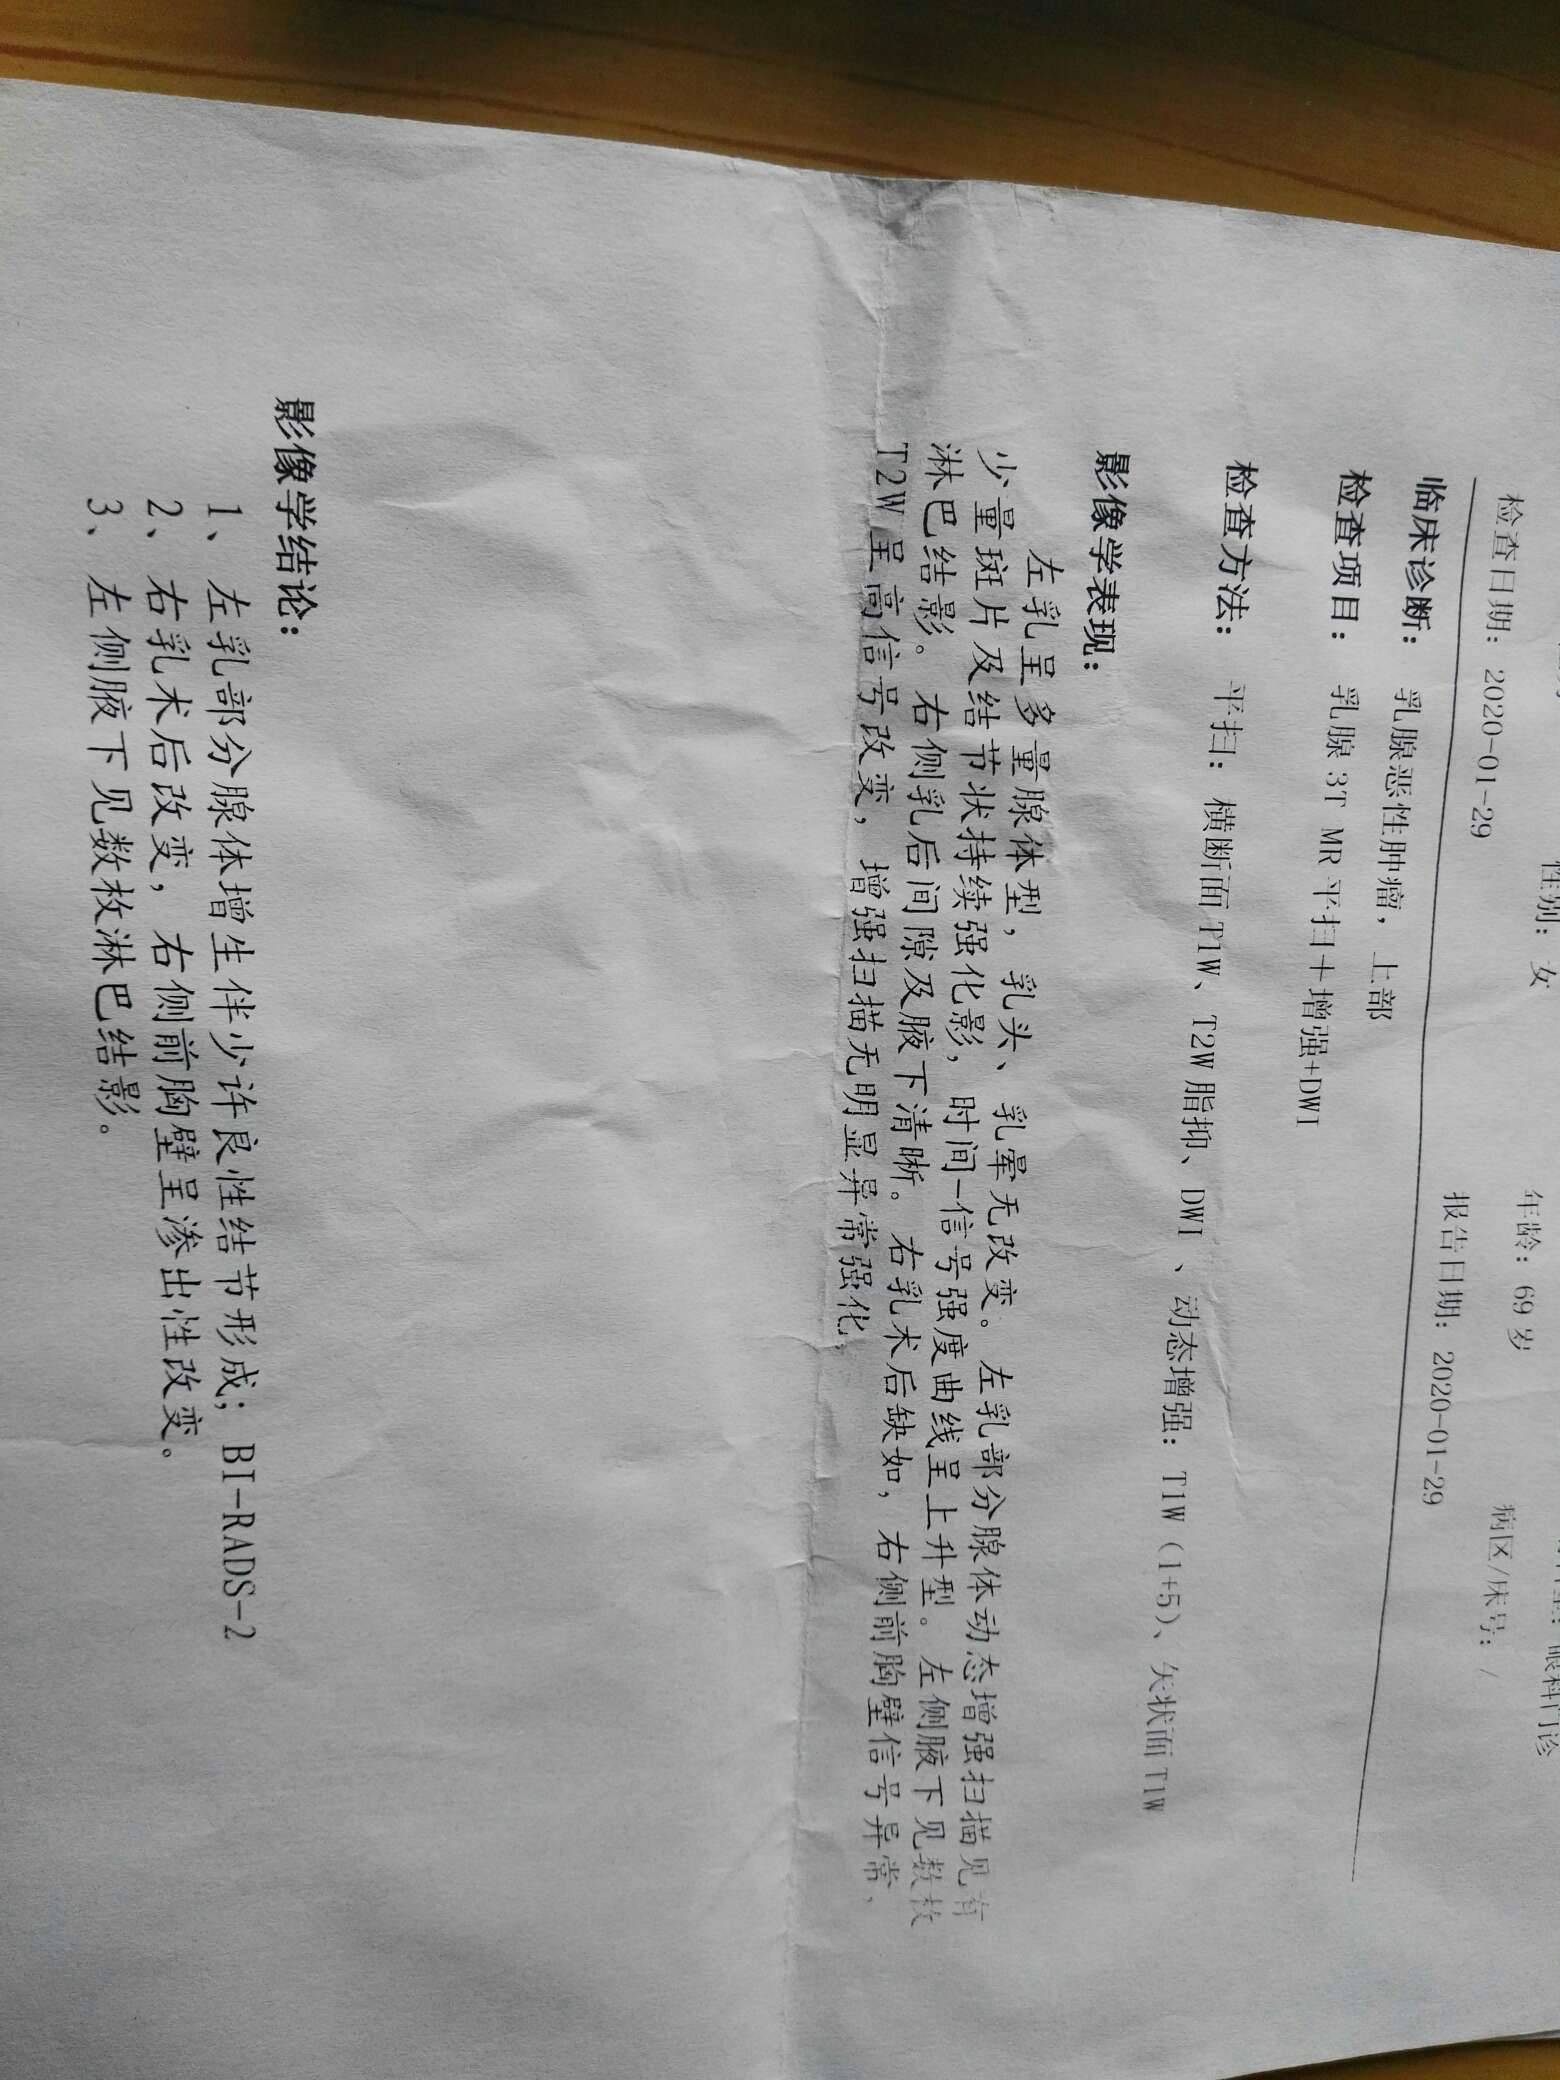 性别：女 年龄：69岁 眼科门诊
检查日期：2020-01-29 报告日期：2020-01-29 病区/床号：/
临床诊断： 乳腺恶性肿瘤，上部
检查项目： 乳腺 3T MR 平扫＋增强+DWI
检查方法： 平扫：横断面 T1W、T2W 脂抑、DWI 、动态增强：T1W（1+5）、矢状面 T1W
影像学表现：
左乳呈多量腺体型，乳头、乳晕无改变。左乳部分腺体动态增强扫描见有
少量斑片及结节状持续强化影，时间-信号强度曲线呈上升型。左侧腋下见数枚
淋巴结影。右侧乳后间隙及腋下清晰。右乳术后缺如，右侧前胸壁信号异常，
T2W 呈高信号改变，增强扫描无明显异常强化，
影像学结论：
1、 左乳部分腺体增生伴少许良性结节形成；BI-RADS-2
2、 右乳术后改变，右侧前胸壁呈渗出性改变。
3、 左侧腋下见数枚淋巴结影。